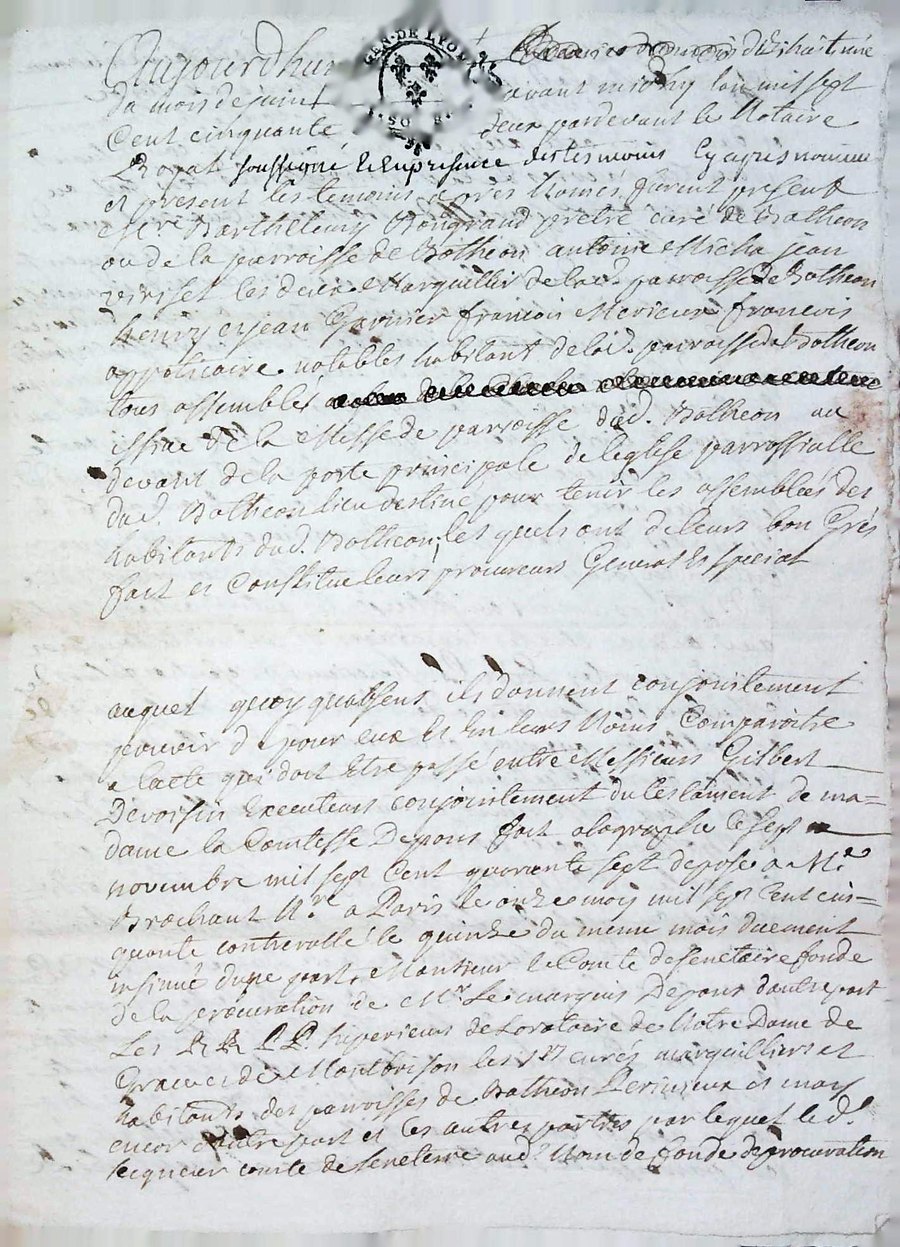 GEN. DE LYON
Aujourdhuy dixhuitieme
du mois de juint avant midy lan mil sept
Cent cinquante deux pardevant le Notaire
Royal soussigné & en presence des tesmoins cy apres nommes
et present les temoins après Només furent present
Barthelemy Bongrand pretre curé de Botheon
ou de la parroisse de Botheon antoine Micha jean
les deux Marguillier de lad. parroisse de Botheon
henry jean francois Merieux francois
appoticaire notables habitant de lad. parroisse de Botheon
tous assemblés
issue de la Messe de parroisse dud. Botheon au
devant de la porte principale de leglise parrossialle
dud. Botheon lieu destiné pour tenir les assemblées des
habitants dud. Botheon, les quels ont de leurs bon Grés
fait et Constitue leurs procureurs General & special
auquel quoy qualsens ils donnent conjointement
pouvoir de pour eux et En leurs Noms Comparoitre
a lacte qui doit Etre passé entre Messieurs Gilbert
Devoisin Executeurs conjointement du testament de ma=
dame la Comtesse Depons fait olographe le sept
novembre mil sept Cent quarante sept deposé a Me
Brochant Nre a Paris le onze may mil sept Cent cin=
quante controllé le quinze du meme mois duement
insinué dune part, Monsieur le Comte de senetaire fondé
de la procuration de Mr Le marquis Depons dautre part
Les R R P P. superieurs de Loratoire de Notre Dame de
Graces de Montbrison les srs curés marguilliers et
habitants des parroisses de Botheon Perineux et
encor dautre part et les autres parties par lequel le d.
seigneur comte de senetaire aud. Nom de fondé de procuration